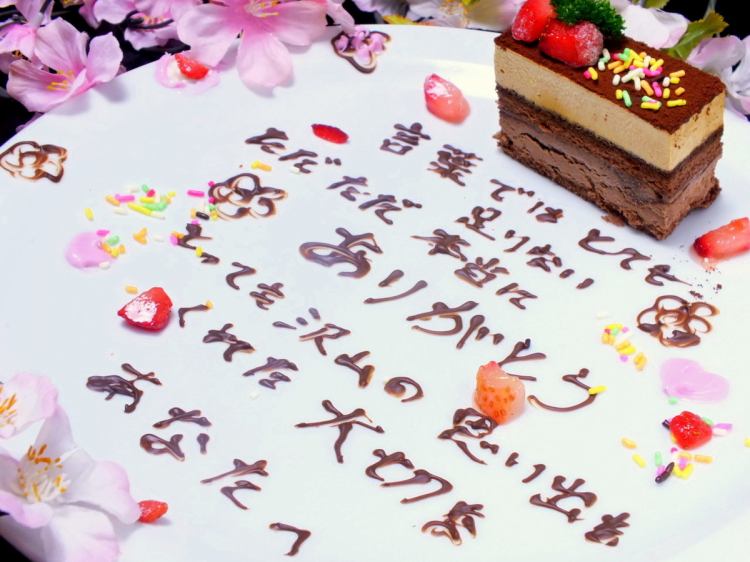 言葉ではとても
足りない…
ただただ本当に
ありがとう
とても沢山の
大切な思い出を
くれた
あなたへ